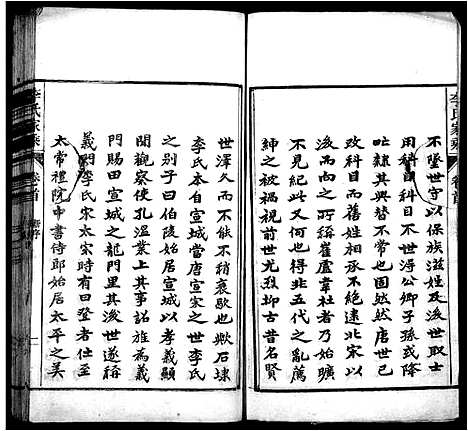 不墜世守以保族滋姓及後世取士
用科目科目不世得公卿子孫或降
吐皂隸其興替不同固然然唐世已
改科目而舊姓相承不絕逮北宋以
後而南中所稱崔盧韋杜者乃始曠
不見紀此又何也得非五代之亂蔫
紳先生莫能炤燿前世光烈抑古昔名賢
世澤久而不能不稍衰歇也歟石埭
李氏本自宣城當唐宣宗之世李氏
之別子曰伯陵始居宣城以孝義顯
聞觀察使孔溫業上其事詔旌為義
門賜田宣城之龍門里其後世遂稱
義門李氏宋太宗時有曰登者仕至
太常禮院中書侍郎始居太平之美
李氏家乘 卷首
李氏家乘 卷首 舊序 一